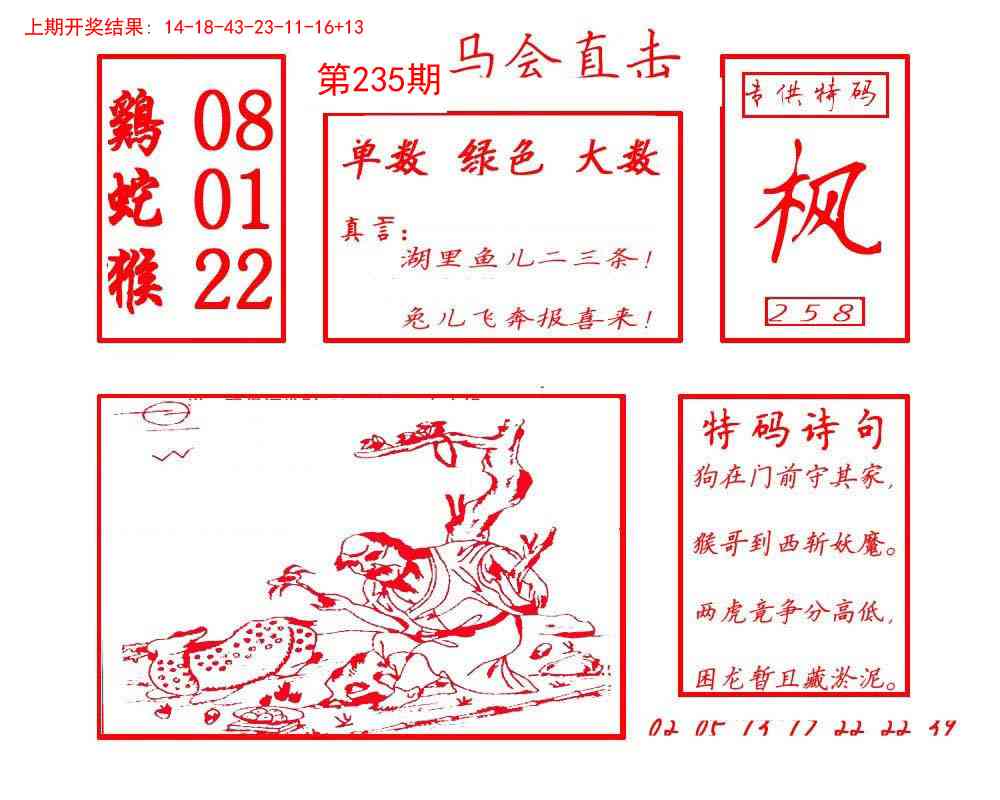 上期开奖结果：14-18-43-23-11-16+13
第235期
马会直击
鷄 08
蛇 01
猴 22
单数 绿色 大数
真言：
湖里鱼儿二三条！
兔儿飞奔报喜来！
专供特码
枫
258
特码诗句
狗在门前守其家，
猴哥到西斩妖魔。
两虎竞争分高低，
困龙暂且藏淤泥。
02 05